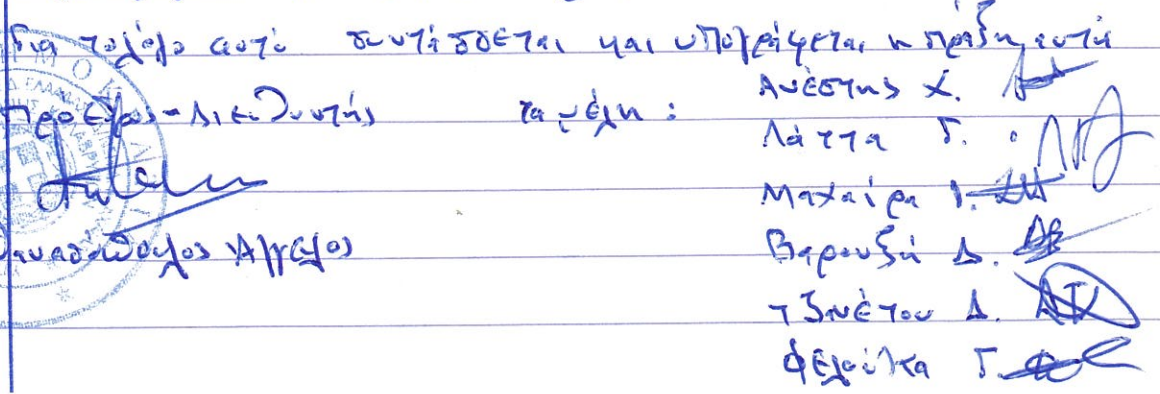 Για το λόγο αυτό συντάσσεται και υπογράφεται η πράξη αυτή
Πρόεδρος - Διευθυντής τα μέλη :
Ανέστης Χ.
Λάττα Γ.
Μαχαίρα
Άγγελος
Βαρουξή Δ.
Τζινέτου Δ.
Φελούκα Γ.